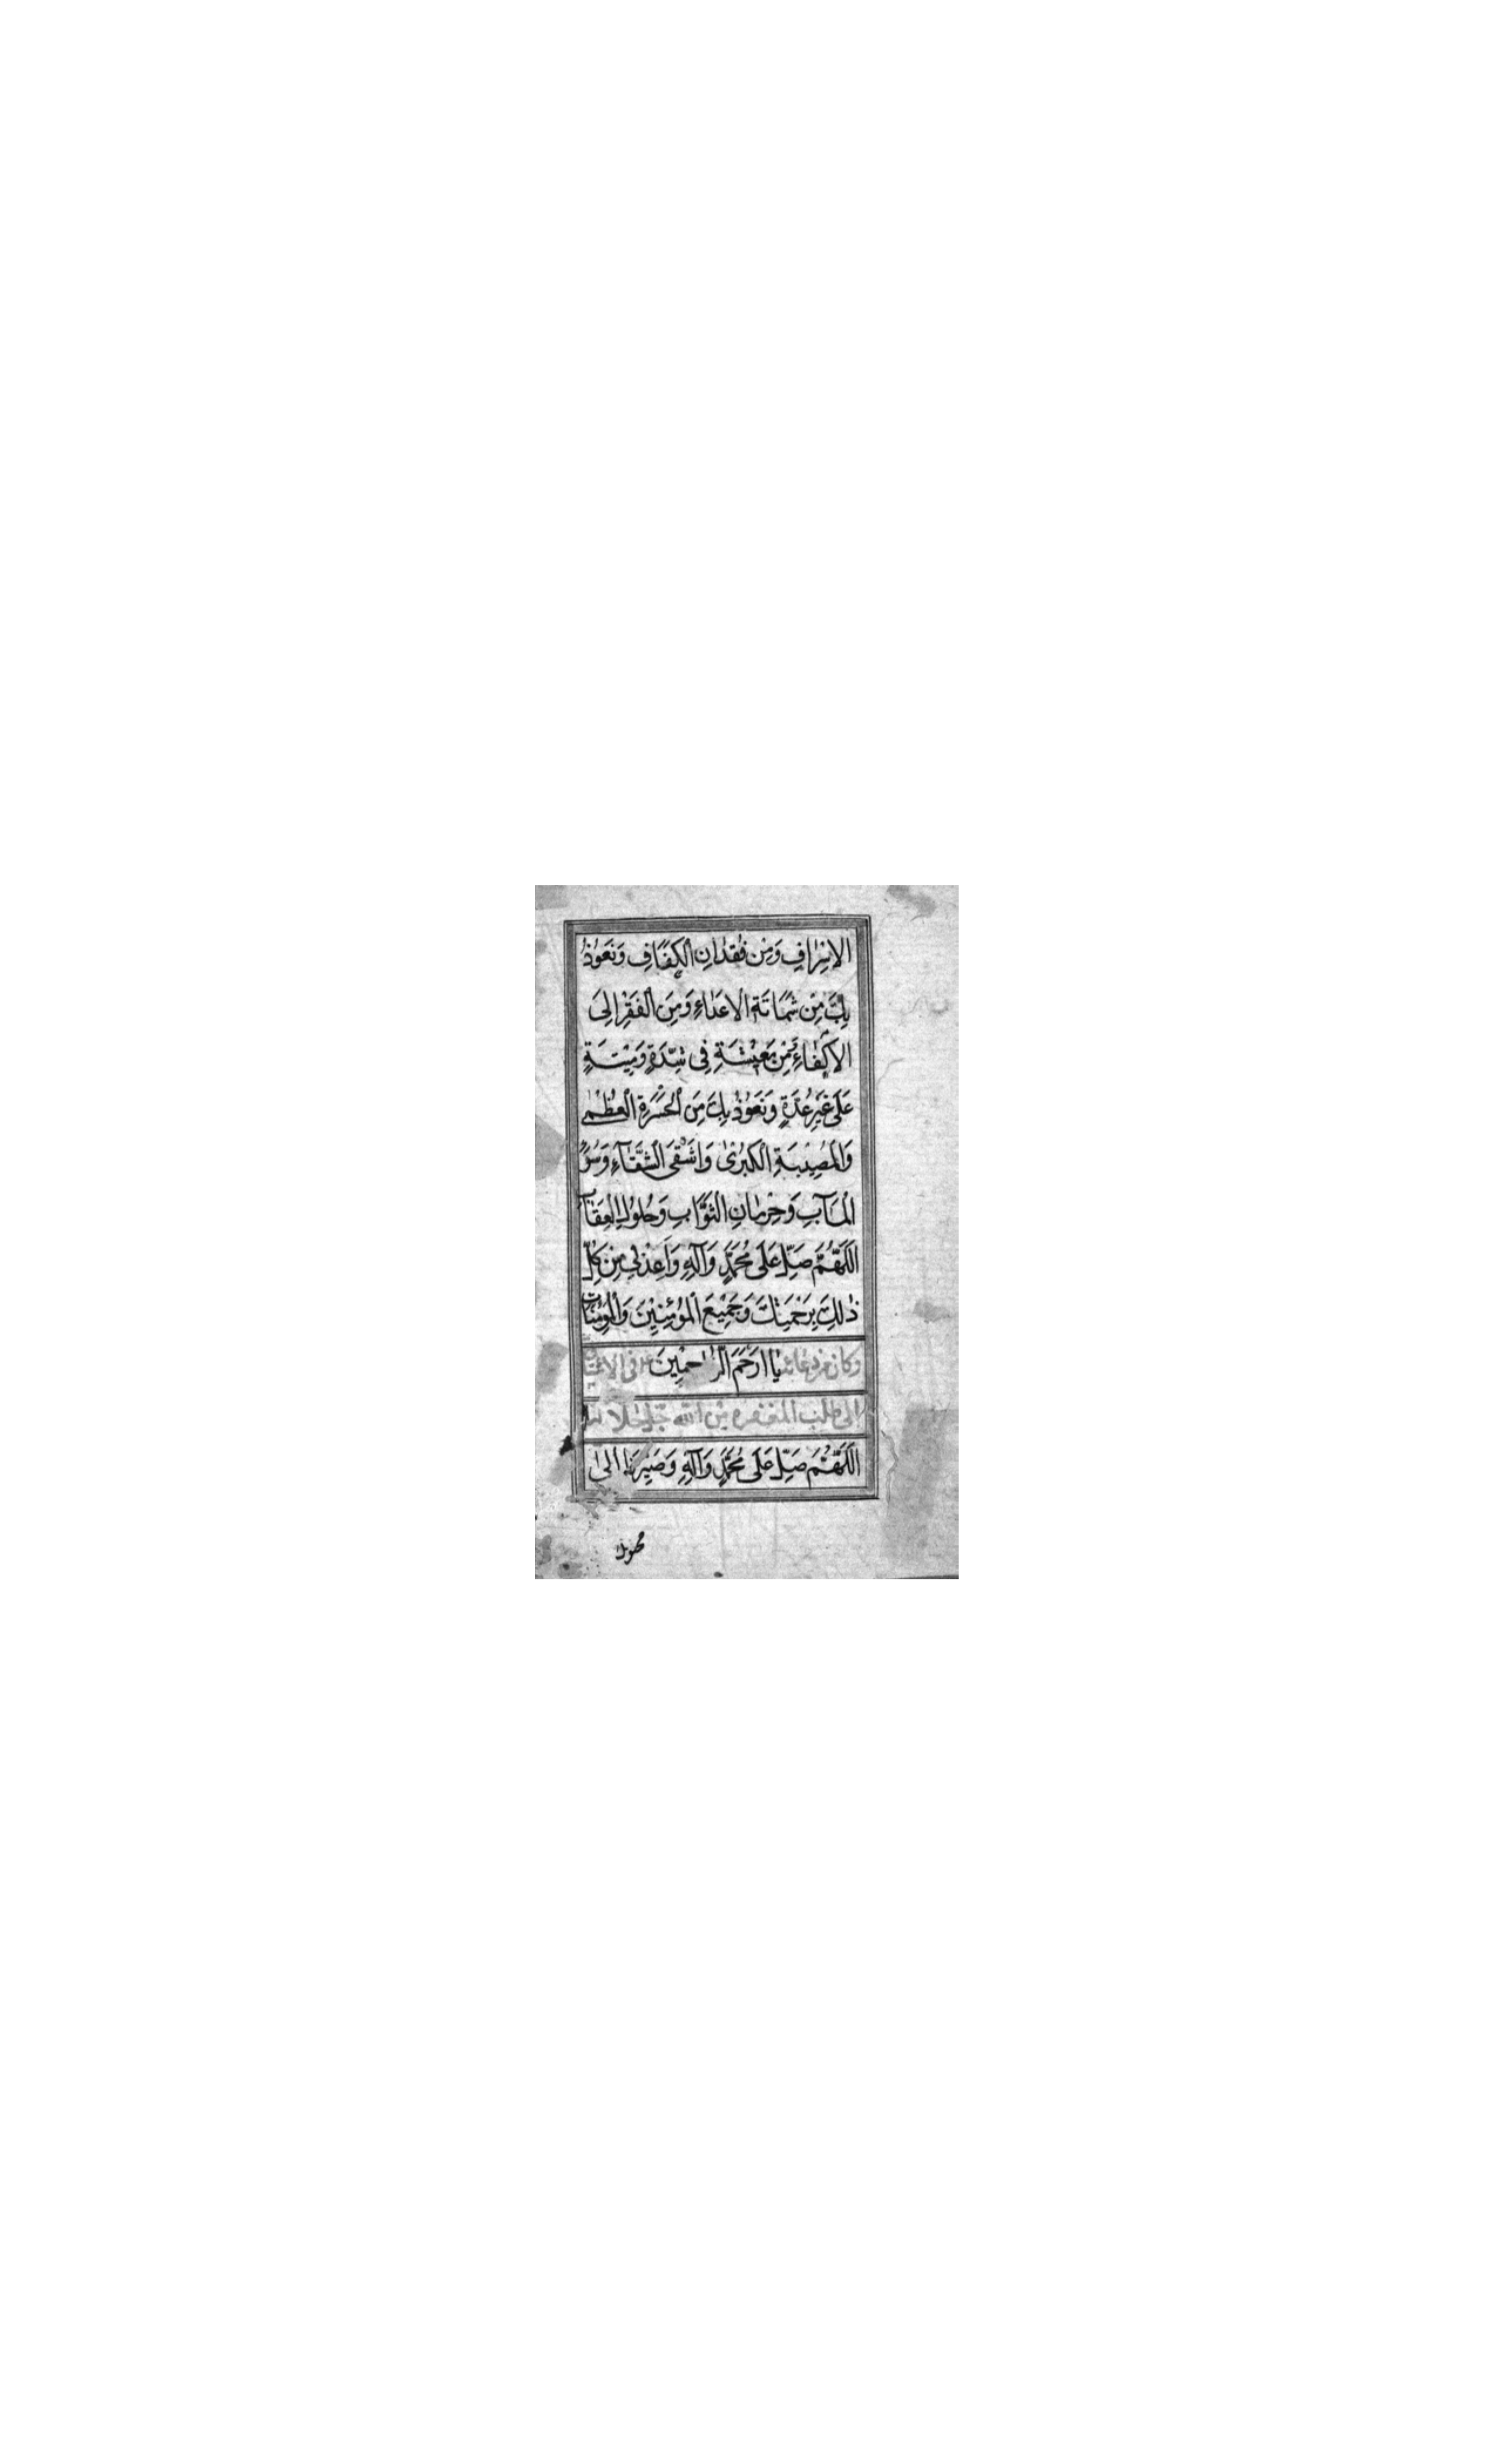 الاِسْرٰافِ وَمِن فُقدٰانِ الكِفٰافِ وَنَعوُذُ
بِكَ مِن شَمٰاتَةِ الاَعدٰاءِ وَمِنَ الفَقرِ اِلىَ
الاَكْفٰاءِ وَمِن مَعيشَةٍ فِى شِدَّةٍ وَمِيْتَةٍ
عَلىٰ غَيْرِ عُدَّةٍ وَنَعوُذُ بِكَ مِنَ الحَسْرَةِ العُظْمىٰ
وَالمُصيْبَةِ الكُبرىٰ وَاَشْقَى الشَّقٰآءِ وَسُوءِ
المَآبِ وَحِرمٰانِ الثَّوٰابِ وَحُلوُلِ العِقٰابِ
اللّهُمَّ صَلِّ عَلىٰ مُحَمَّدٍ وَآلِهِ وَاَعِذنى مِن كُلِّ
ذٰلِكَ بِرَحْمَتِكَ وَجَميْعَ المُؤمِنيْنَ وَالمُؤمِنٰاتِ
يٰا اَرحَمَ الرّٰاحِميْنَ وكان من دعائه ع فى الاشتياق
الى طلب المغفره من الله جل جلاله
اللّهُمَّ صَلِّ عَلىٰ مُحَمَّدٍ وَآلِهِ وَصَيِّرنٰا اِلىٰ
محبوبك